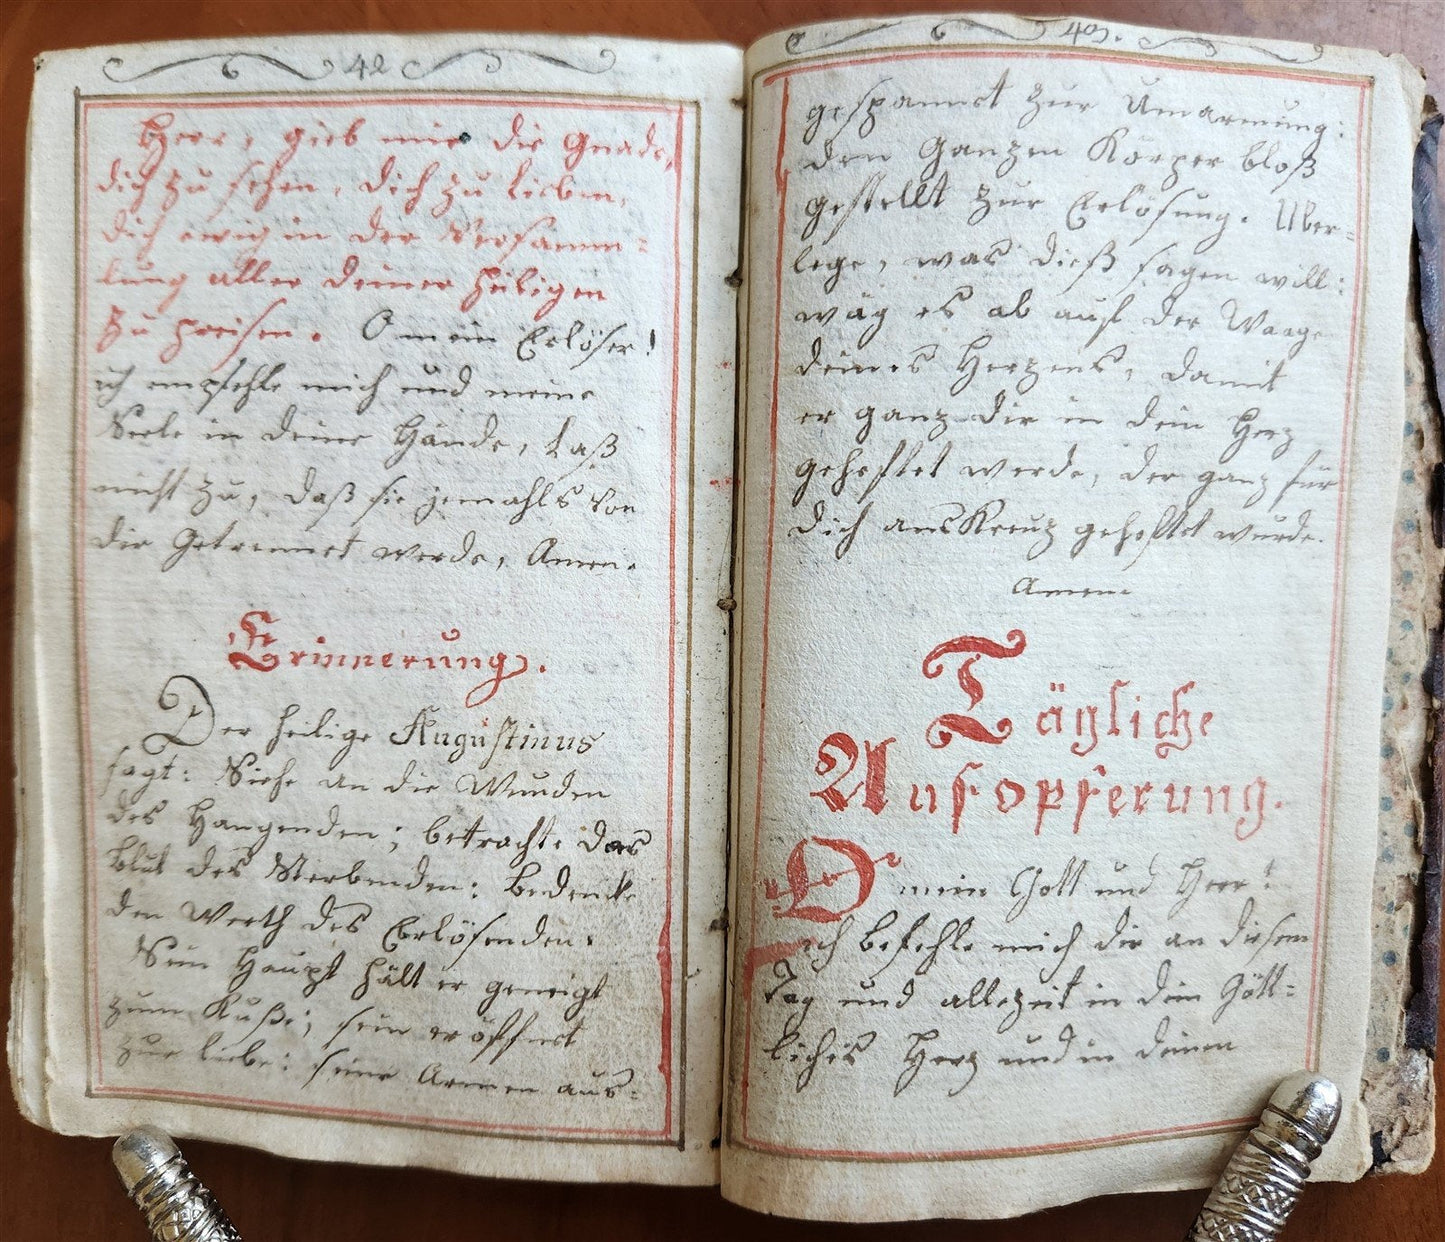 42
Herr, gieb mir die Gnade,
dich zu sehen, dich zu lieben,
dich ewig in der Versamm=
lung aller deiner Heiligen
zu preisen. O mein Erlöser!
ich empfehle mich und meine
Seele in deine Hände, laß
nicht zu, daß sie jemahls von
dir Getrennet werde, Amen.
Erinnerung.
Der heilige Augustinus
sagt: Siehe an die Wunden
des Hangenden; betrachte das
blut des Sterbenden: bedenke
den Werth des Erlösenden.
Sein Haupt hält er geneigt
zum Kuße; sein eröffnet
zur liebe: seine Armen aus=
43.
gespannet zur Umarmung:
den Ganzen Körper bloß
gestellt zur Erlösung. Über=
lege, was dieß sagen will:
wäg es ab auf der Waage
deines Herzens, damit
er ganz dir in dein Herz
geheftet werde, der ganz für
dich ans Kreuz geheftet wurde.
Amen.
Tägliche
Aufopferung.
O mein Gott und Herr!
ich befehle mich dir an diesem
Tag und allezeit in dein Gött=
liches Herz und in deinen